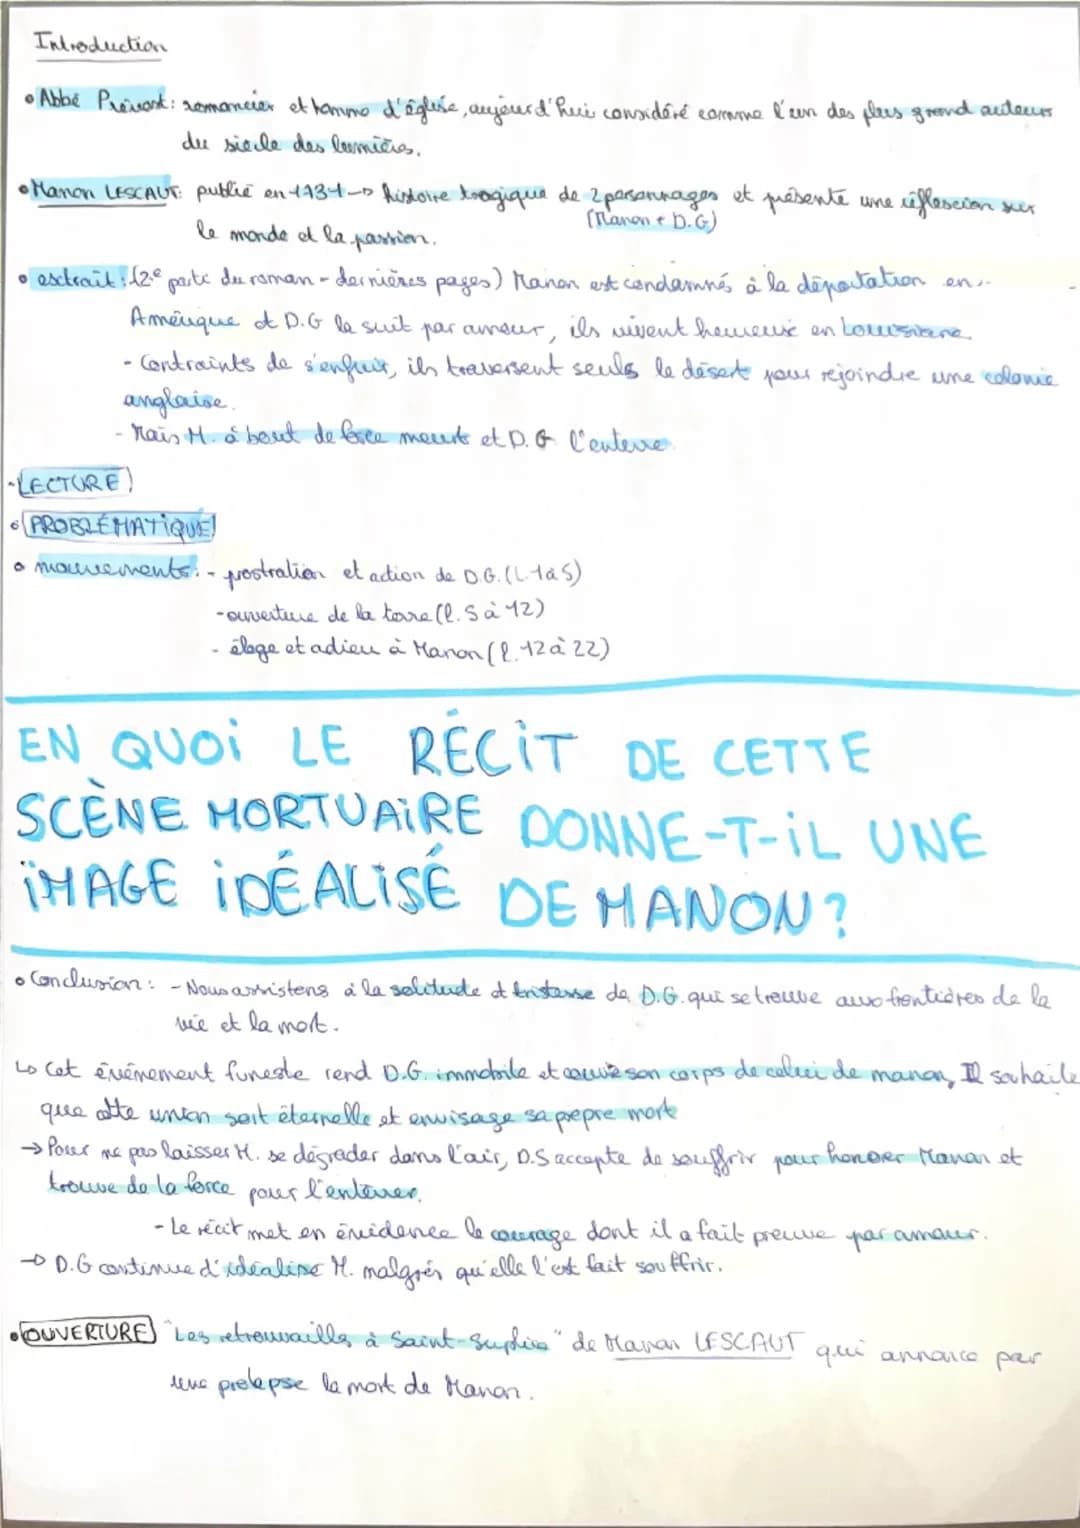 Introduction
• Abbé Prévost: romancier et homme d'église, aujourd'hui considéré comme l'un des plus grand auteurs
du siècle des lumières.
• Manon LESCAUT: publié en 1731 → histoire tragique de 2 personnages et présente une réflexion sur
(Manon + D.G)
le monde et la passion.
• extrait: (2e partie du roman - dernières pages) Manon est condamnés à la déportation en
Amérique et D.G la suit par amour, ils vivent heureux en Louisiane
- Contraints de s'enfuir, ils traversent seuls le désert pour rejoindre une colonie
anglaise.
- Mais M. à bout de force meurt et D.G l'enterre.
- LECTURE
• PROBLÉMATIQUE
• mouvements: - prostration et action de D.G. (L.1 à 5)
- ouverture de la terre (l. 5 à 12)
- éloge et adieu à Manon (l. 12 à 22)
EN QUOI LE RÉCIT DE CETTE
SCÈNE MORTUAIRE DONNE-T-IL UNE
IMAGE IDÉALISÉ DE MANON?
• Conclusion: - Nous assistons à la solitude et tristesse de D.G. qui se trouve aux frontières de la
vie et la mort.
↳ Cet événement funeste rend D.G. immobile et couvre son corps de celui de manon, Il souhaite
que cette union soit éternelle et envisage sa propre mort
→ Pour ne pas laisser M. se dégrader dans l'air, D.S accepte de souffrir pour honorer Manon et
trouve de la force pour l'enterrer.
- Le récit met en évidence le courage dont il a fait preuve par amour.
→ D.G continue d'idéalise M. malgrés qu'elle l'est fait souffrir.
• OUVERTURE "Les retrouvailles à Saint-Suplice" de Manon LESCAUT qui annonce par
une prolepse la mort de Manon.